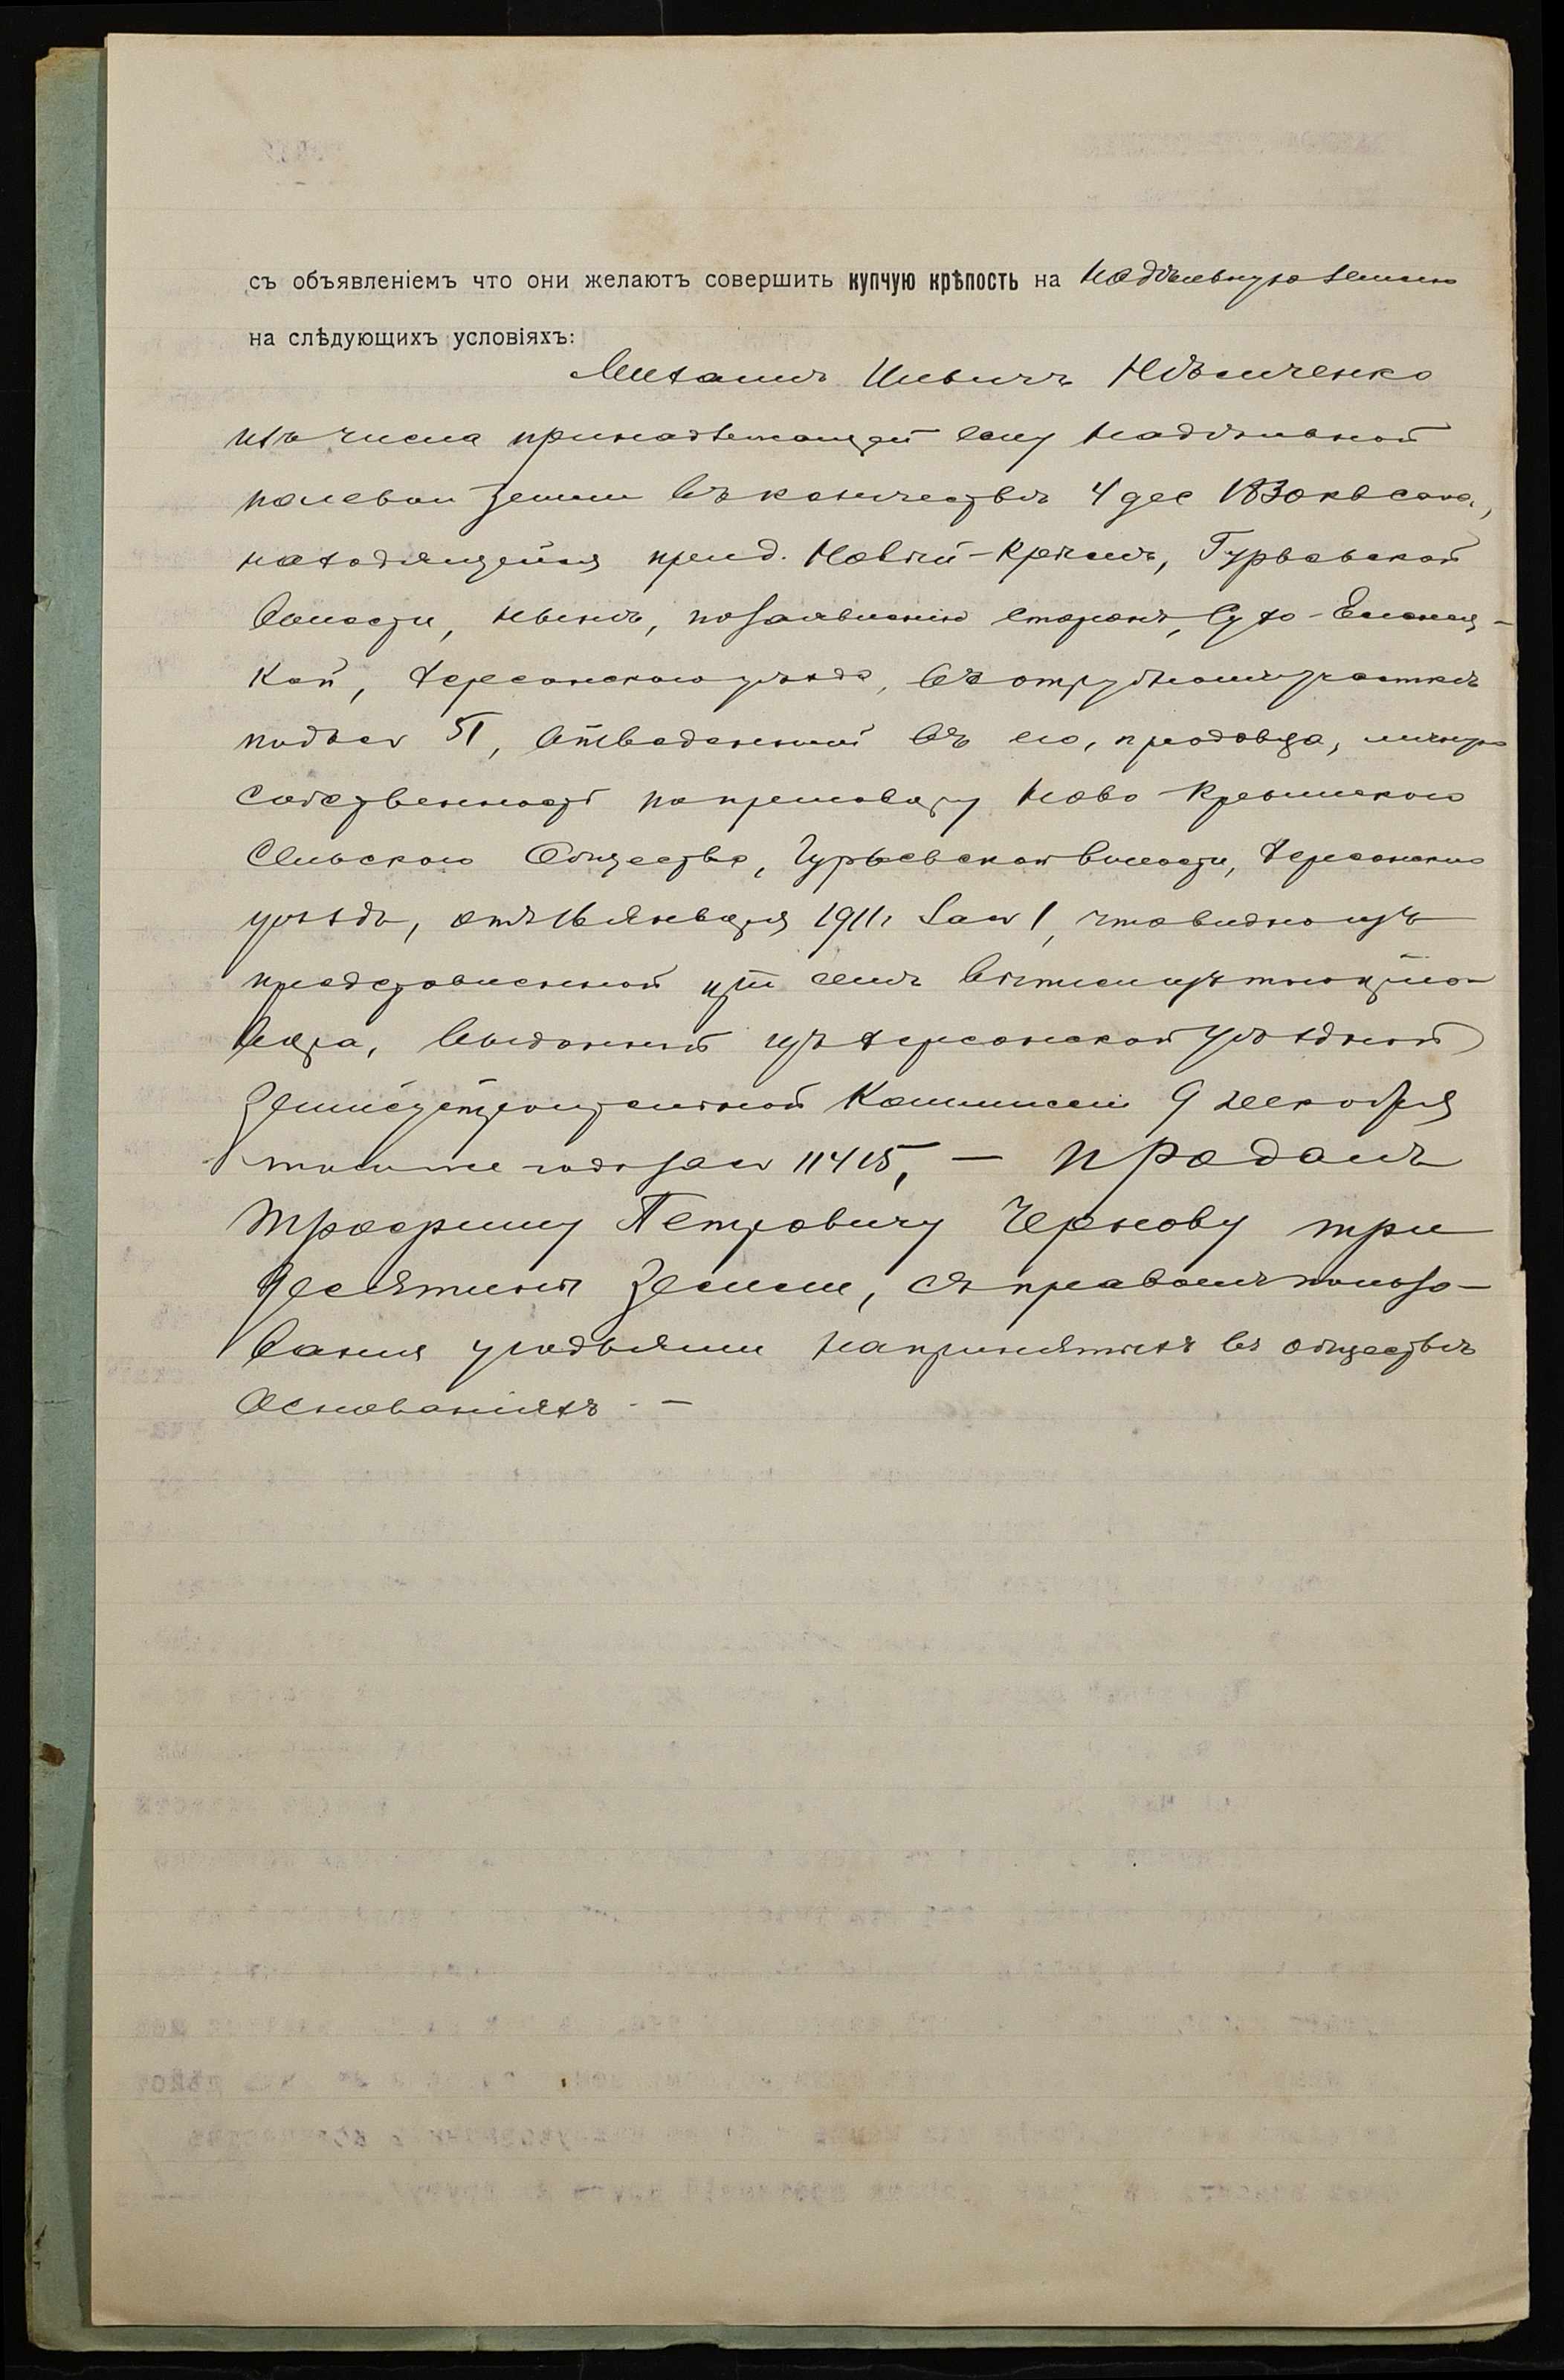 съ объявленіемъ что они желаютъ совершить купчую крѣпость на надѣльную землю
на слѣдующихъ условіяхъ:
Михаилъ Ильичъ Нѣмченко
изъ числа принадлежащей ему надѣльной
полевой земли въ количествѣ 4 дес 1830 кв саж.,
находящейся при д. Новый-Крымъ, Гурьевской
волости, нынѣ, по заявленію сторонъ, Сухо-Еланец-
кой, Херсонскаго уѣзда, въ отрубномъ участкѣ
подъ № 51, отведенный въ его, продавца, личную
собственность по приговору Ново-Крымскаго
Сельскаго Общества, Гурьевской волости, Херсонскаго
уѣзда, отъ января 1911 г за № 1, что видно изъ
представленной при семъ выписи изъ того приго-
вора, выданной изъ Херсонской Уѣздной
Землеустроительной Коммисіи 9 декабря
того же года за № 11415, — продалъ
Трофиму Петровичу Чернову три
десятины земли, съ правомъ пользо-
ванія угодьями на принятыхъ въ обществѣ
основаніяхъ. —